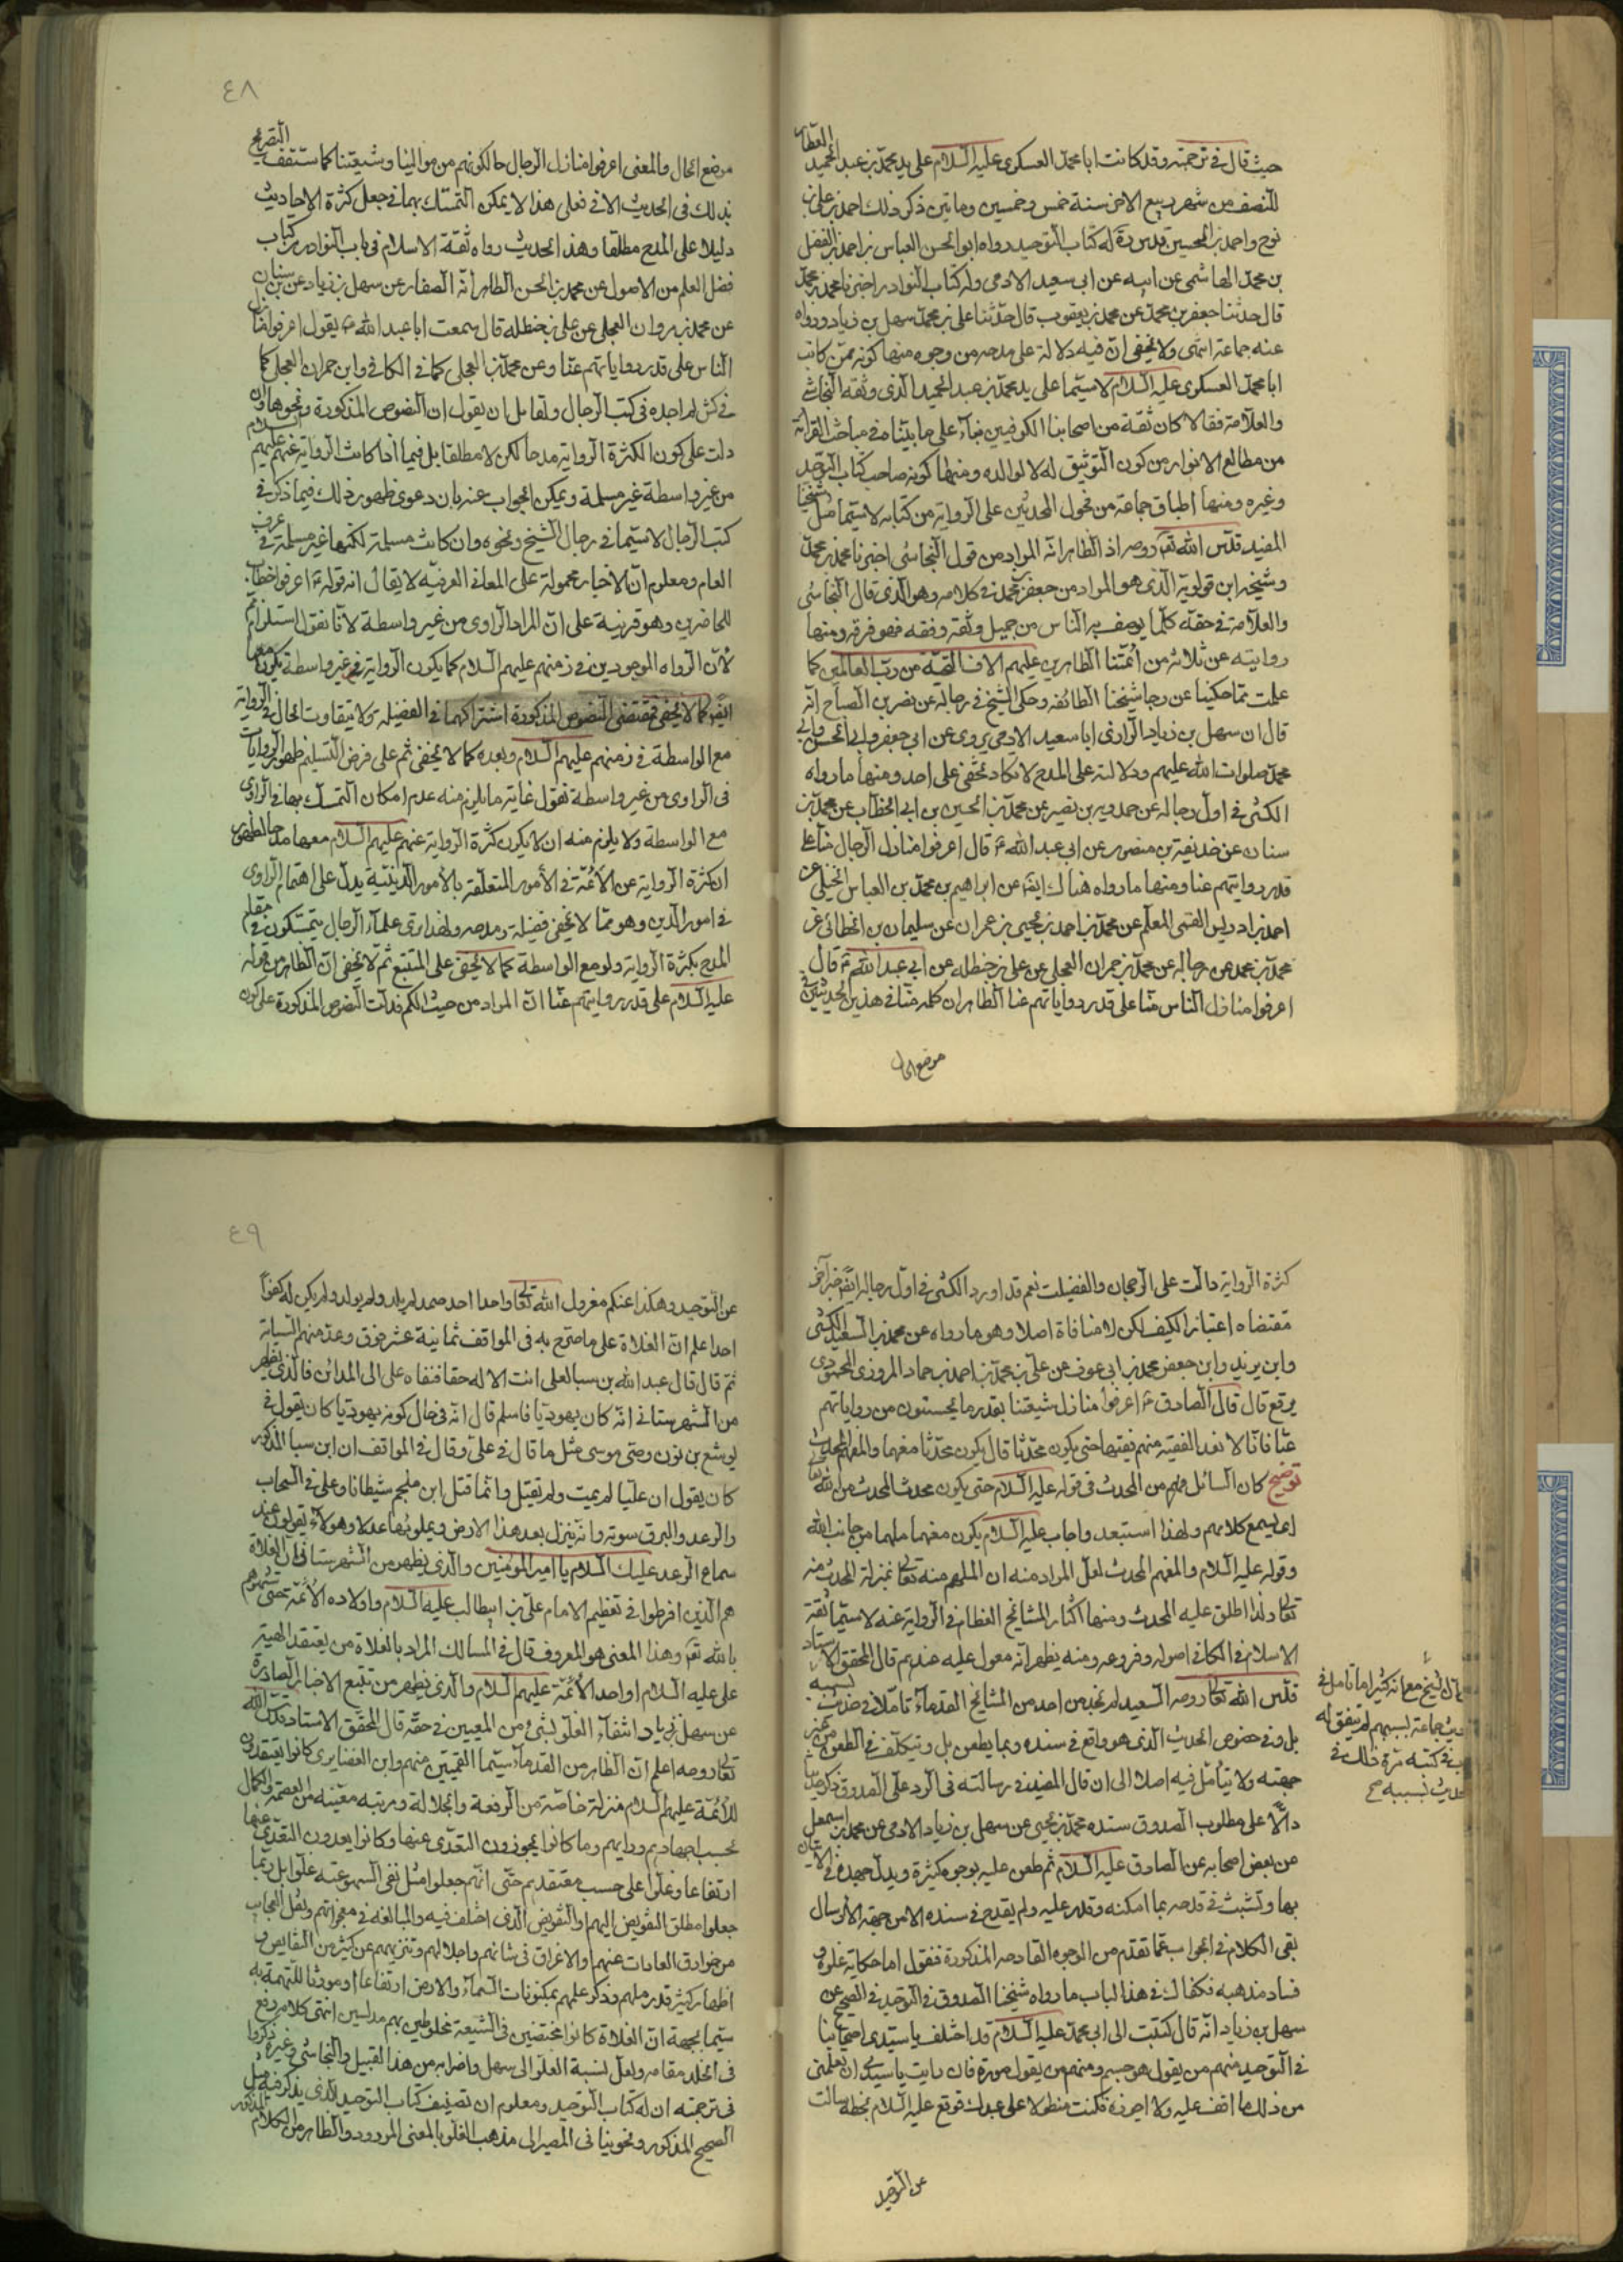 حيث قال في ترجمته وقد كاتب ابا محمد العسكرى عليه السلام على يد محمد بن عبد الحميد العطار
للنصف من شهر ربيع الاخر سنة خمس وخمسين ومأتين ذكر ذلك احمد بن على بن
نوح واحمد بن الحسين له كتاب التوحيد رواه ابو الحسن العباس بن احمد بن الفضل
بن محمد الهاشمى عن ابيه عن ابى سعيد الادمى وله كتاب النوادر اخبرناه محمد بن محمد
قال حدثنا جعفر بن محمد عن محمد بن يعقوب قال حدثنا على بن محمد عن سهل بن زياد ورواه
عنه جماعة انتهى ولا يخفى ان فيه دلالة على مدحه من وجوه منها كونه ممن كاتب
ابا محمد العسكرى عليه السلام لا سيما على يد محمد بن عبد الحميد الذى وثقه النجاشى
والعلامة فقالا كان ثقة من اصحابنا الكوفيين بناء على ما بيناه في مباحث القرائة
من مطالع الانوار من كون التوثيق له لا لوالده ومنها كونه صاحب كتاب التوحيد
وغيره ومنها اطباق جماعة من فحول المحدثين على الرواية من كتابه لا سيما مثل شيخنا
المفيد قدس الله تع روحه اذ الظاهر انه المراد من قول النجاشى اخبرنا محمد بن محمد
وشيخه ابن قولويه الذى هو المراد من جعفر بن محمد في كلامه وهو الذى قال النجاشى
والعلامة في حقه كلما يوصف به الناس من جميل وثقة وفقه فهو فوقه ومنها
روايته عن ثلاثة من ائمتنا الطاهرين عليهم الاف التحية من رب العالمين كما
علمت مما حكينا عن رجال شيخنا الطائفه وحكى الشيخ في رجاله عن نصر بن الصباح انه
قال ان سهل بن زياد الرازى ابا سعيد الادمى يروى عن ابى جعفر وابى الحسن وابى
محمد صلوات الله عليهم ودلالته على المدح لا تكاد تخفى على احد ومنها ما رواه
الكشى في اول رجاله عن حمدويه بن نصير عن محمد بن الحسين بن ابى الخطاب عن محمد بن
سنان عن حذيفة بن منصور عن ابى عبد الله ع قال اعرفوا منازل الرجال منا على
قدر روايتهم عنا ومنها ما رواه هناك ايضا عن ابراهيم بن محمد بن العباس الختلى عن
احمد بن ادريس القمى المعلم عن محمد بن احمد بن يحيى بن عمران عن سليمان بن الخطابى عن
محمد بن محمد عن رجاله عن محمد بن حمران العجلى عن على بن حنظله عن ابى عبد الله ع قال
اعرفوا منازل الناس منا على قدر رواياتهم عنا الظاهر ان كلمة منا في هذين الحديثين في
موضع الحال
٤٨
موضع الحال والمعنى اعرفوا منازل الرجال حالكونهم من موالينا وشيعتنا كما ستقف التصريح
بذلك في الحديث الاتى فعلى هذا لا يمكن التمسك بهما في جعل كثرة الاحاديث
دليلا على المدح مطلقا وهذا الحديث رواه ثقة الاسلام في باب النوادر من كتاب
فضل العلم من الاصول عن محمد بن الحسن الظاهر انه الصفار عن سهل بن زياد عن ابن سنان
عن محمد بن مروان العجلى عن على بن حنظله قال سمعت ابا عبد الله ع يقول اعرفوا منازل
الناس على قدر رواياتهم عنا وعن محمد بن العجلى كما في الكافى وابن حمران العجلى كما
في كش لم اجده في كتب الرجال ولقائل ان يقول ان النصوص المذكورة ونحوها وان
دلت على كون الكثرة الرواية مدحا لكن لا مطلقا بل فيما اذا كانت الرواية عنهم عليهم السلام
من غير واسطة غير مسلمة ويمكن الجواب عنه بان دعوى ظهور ذلك فيما ذكر في
كتب الرجال لا سيما في رجال الشيخ ونحوه وان كانت مسلمة لكنها غير مسلمة في عرف
العام ومعلوم ان الاخبار محمولة على المعانى العرفيه لا يقال ان قوله ع اعرفوا خطاب
للحاضرين وهو قرينة على ان المراد الراوى من غير واسطة لانا نقول استلزام
لان الرواه الموجودين في زمنهم عليهم السلام كما يكون الرواية من غير واسطة يكون معها
ايضا كما لا يخفى فمقتضى النصوص المذكورة اشتراكهما في الفضيلة ولا يتفاوت الحال في الرواية
مع الواسطة في زمنهم عليهم السلام وبعده كما لا يخفى ثم على فرض التسليم ظهور الروايات
في الراوى من غير واسطة نقول غاية ما يلزم منه عدم امكان التمسك بها في الراوى
مع الواسطة ولا يلزم منه ان لا يكون كثرة الرواية عنهم عليهم السلام معها مدحا لظهور
ان كثرة الرواية عن الائمة في الأمور المتعلقة بالأمور الدينية يدل على اهتمام الراوى
في امور الدين وهو مما لا يخفى فضيلة ومدحه ولهذا ترى علماء الرجال يتمسكون في مقام
المدح بكثرة الرواية ولو مع الواسطة كما لا يخفى على المتتبع ثم لا يخفى ان الظاهر من قوله
عليه السلام على قدر روايتهم عنا ان المراد من حيث الكم فدلت النصوص المذكورة على كون
كثرة الرواية دالت على الرجحان والفضيلت نعم قد اورد الكشى في اول رجاله ايضا خبرا اخر
مقتضاه اعتبار الكيف لكن لا منافاة اصلا وهو ما رواه عن محمد بن السعيد الكشى
وابن يزيد وابن جعفر محمد بن ابى عوف عن على بن محمد بن احمد بن حماد المروزى المحمودى
يرفع قال قال الصادق ع اعرفوا منازل شيعتنا بقدر ما يحسنون من رواياتهم
عنا فانا لا نعد الفقيه منهم فقيها حتى يكون محدثا قال يكون محدثا مفهما والمفهم المحدث
توضيح كان السائل فهم من المحدث في قوله عليه السلام حتى يكون محدثا المحدث من الله تعالى
اى يسمع كلامهم ولهذا استبعد واجاب عليه السلام يكون مفهما ملهما من جانب الله
وقوله عليه السلام والمفهم المحدث لعل المراد منه ان الملهم منه تعالى بمنزلة المحدث منه
تعالى ولذا اطلق عليه المحدث ومنها اكثار المشائخ العظام في الرواية عنه لا سيما ثقة
الاسلام في الكافى اصوله وفروعه ومنه يظهر انه معول عليه عندهم قال المحقق الاستاد
قدس الله تعالى روحه السعيد لم نجد من احد من المشائخ القدماء تاملا في حديث بسببه
بل وفي خصوص الحديث الذى هو واقع في سنده ربما يطعن بل ويتكلف في الطعن من غير
جهته ولا يتأمل فيه اصلا الى ان قال المفيد في رسالته في الرد على الصدوق ذكر حديثا
دالا على مطلوب الصدوق سنده محمد بن يحيى عن سهل بن زياد الادمى عن محمد بن اسمعيل
عن بعض اصحابه عن الصادق عليه السلام ثم طعن عليه بوجوه كثيرة وبذل جهده في الاتيان
بها وتشبث في قدحه بما امكنه وقدر عليه ولم يقدح في سنده الا من جهة الارسال
بقى الكلام في الجواب عما تقدم من الوجوه القادحه المذكورة فنقول اما حكاية غلوه و
فساد مذهبه فكفاك في هذا الباب ما رواه شيخنا الصدوق في التوحيد في الصحيح عن
سهل بن زياد انه قال كتبت الى ابى محمد عليه السلام قد اختلف يا سيدى اصحابنا
في التوحيد منهم من يقول هو جسم ومنهم من يقول صورة فان رأيت يا سيدى ان تعلمنى
من ذلك ما اقف عليه ولا اجوزه فكنت متطولا على عبدك فوقع عليه السلام بخطه سالت
عن التوحيد
الشيخ مع انه كثيرا ما تامل في
جماعة بسببهم لم يتفق له
في كتبه مرة ذلك في
حديث بسببه صح
٤٩
عن التوحيد وهكذا عنكم معزول الله تعالى واحد احد صمد لم يلد ولم يولد ولم يكن له كفوا
احد اعلم ان الغلاة على ما صرح به في المواقف ثمانية عشر فرق وعد منهم السبائة
ثم قال قال عبد الله بن سبا لعلى انت الاله حقا فنفاه على الى المدائن فالذى يظهر
من الشهرستانى انه كان يهوديا فاسلم قال انه في حال كونه يهوديا كان يقول في
يوشع بن نون وصى موسى مثل ما قال في على وقال في المواقف ان ابن سبا المذكور
كان يقول ان عليا لم يمت ولم يقتل وانما قتل ابن ملجم شيطانا وعلى في السحاب
والرعد والبرق سوته وانه ينزل بعد هذا الارض ويملوئها عدلا وهولاء يقولون عند
سماع الرعد عليك السلام يا امير المؤمنين والذى يظهر من الشهرستانى ان الغلاة
هم الذين افرطوا في تعظيم الامام على بن ابيطالب عليه السلام واولاده الائمة حتى شبهوهم
بالله تع وهذا المعنى هو المعروف قال في المسالك المراد بالغلاة من يعتقد الهية
على عليه السلام او احد الأئمة عليهم السلام والذى يظهر من تتبع الاخبار الصادرة
عن سهل بن زياد انتفاء الغلو بشىء من المعيين في حقه قال المحقق الاستاد قدس الله
تعالى روحه اعلم ان الظاهر من القدماء سيما القميين منهم وابن الغضايرى كانوا يعتقدون
للائمة عليهم السلام منزلة خاصة من الرفعة والجلالة ومرتبه معينه من العصمة والكمال
بحسب اجتهادهم ورايهم وما كانوا يجوزون التعدى عنها وكانوا يعدون التعدى عنها
ارتفاعا وغلوا على حسب معتقدهم حتى انهم جعلوا مثل نفى السهو عنه غلوا بل ربما
جعلوا مطلق التفويض اليهم او التفويض الذى اختلف فيه والمبالغه في معجزاتهم ونقل العجايب
من خوارق العادات عنهم او الاغراق في شانهم واجلالهم وتنزيههم عن كثير من النقايص و
اظهار كثير قدر ملهم وذكر علمهم بمكنونات السماء والارض ارتفاعا او مورثا للتهمة به
سيما بجهة ان الغلاة كانوا مختفين في الشيعة مخلوطين بهم مدلسين انتهى كلامه رفع
في الخلد مقامه ولعل نسبة الغلو الى سهل واضرابه من هذا القبيل والنجاشى وغيره ذكروا
في ترجمته ان له كتاب التوحيد ومعلوم ان تصنيف كتاب التوحيد الذى يذكر فيه مثل
الصحيح المذكور ونحو ينافى المصير الى مذهب الغلو بالمعنى المردود والظاهر من الكلام المذكور